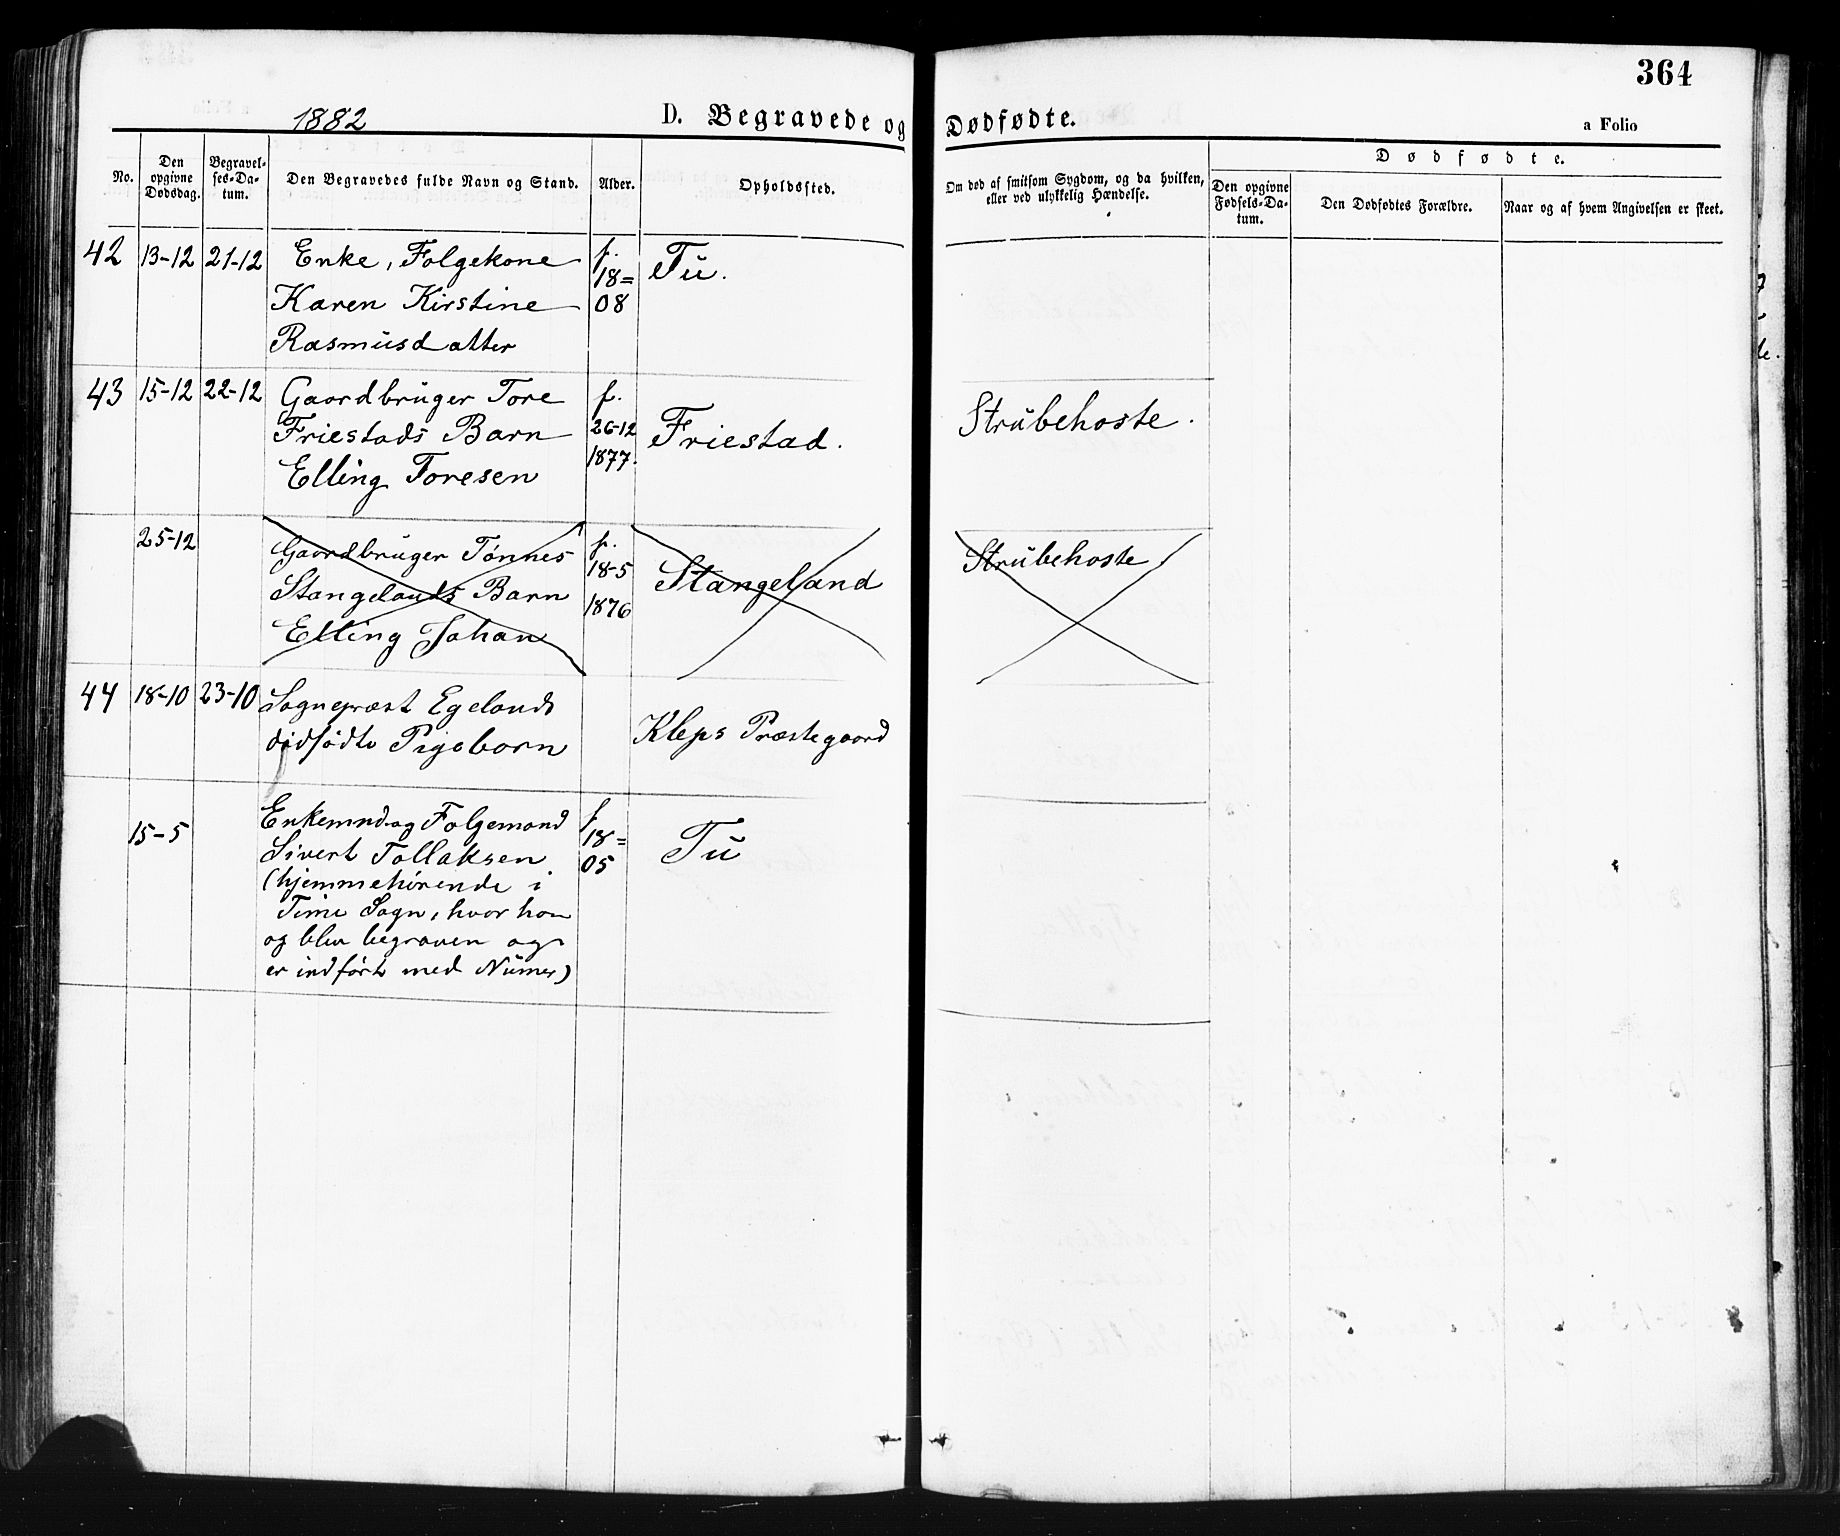 364
1882
D. Begravede og Dødfødte.
a Folio
No.
Den opgivne Dødsdag.
Begravel-
ses-Da-
tum.
Den Begravedes fulde Navn og Stand.
Alder.
Opholdssted.
Om død af smitsom Sygdom, og da hvilken,
eller ved ulykkelig Hændelse.
Dødfødte.
Den opgivne
Fødsels-Da-
tum.
Den Dødfødtes Forældre.
Naar og af hvem Angivelsen er skeet.
42 13-12 21-12 Enke, Folgekone f. Tu.
Karen Kirstine 18=
Rasmusdatter 08
43 15-12 22-12 Gaardbruger Tore f. Friestad. Strubehoste.
Friestads Barn 26-12
Elling Toresen 1877.
25-12 Gaardbruger Tønnes f. Stangeland Strubehoste
Stangelands Barn 18-5
Elling Johan 1876
44 18-10 23-10 Sognepræst Egelands Kleps Præstegaard
dødfødte Pigebarn
15-5 Enkemand og Folgemand f Tu
Sivert Tollaksen 18=
(hjemmehörende i 05
Time Sogn, hvor han
og blev begraven og
er indført med Numer)